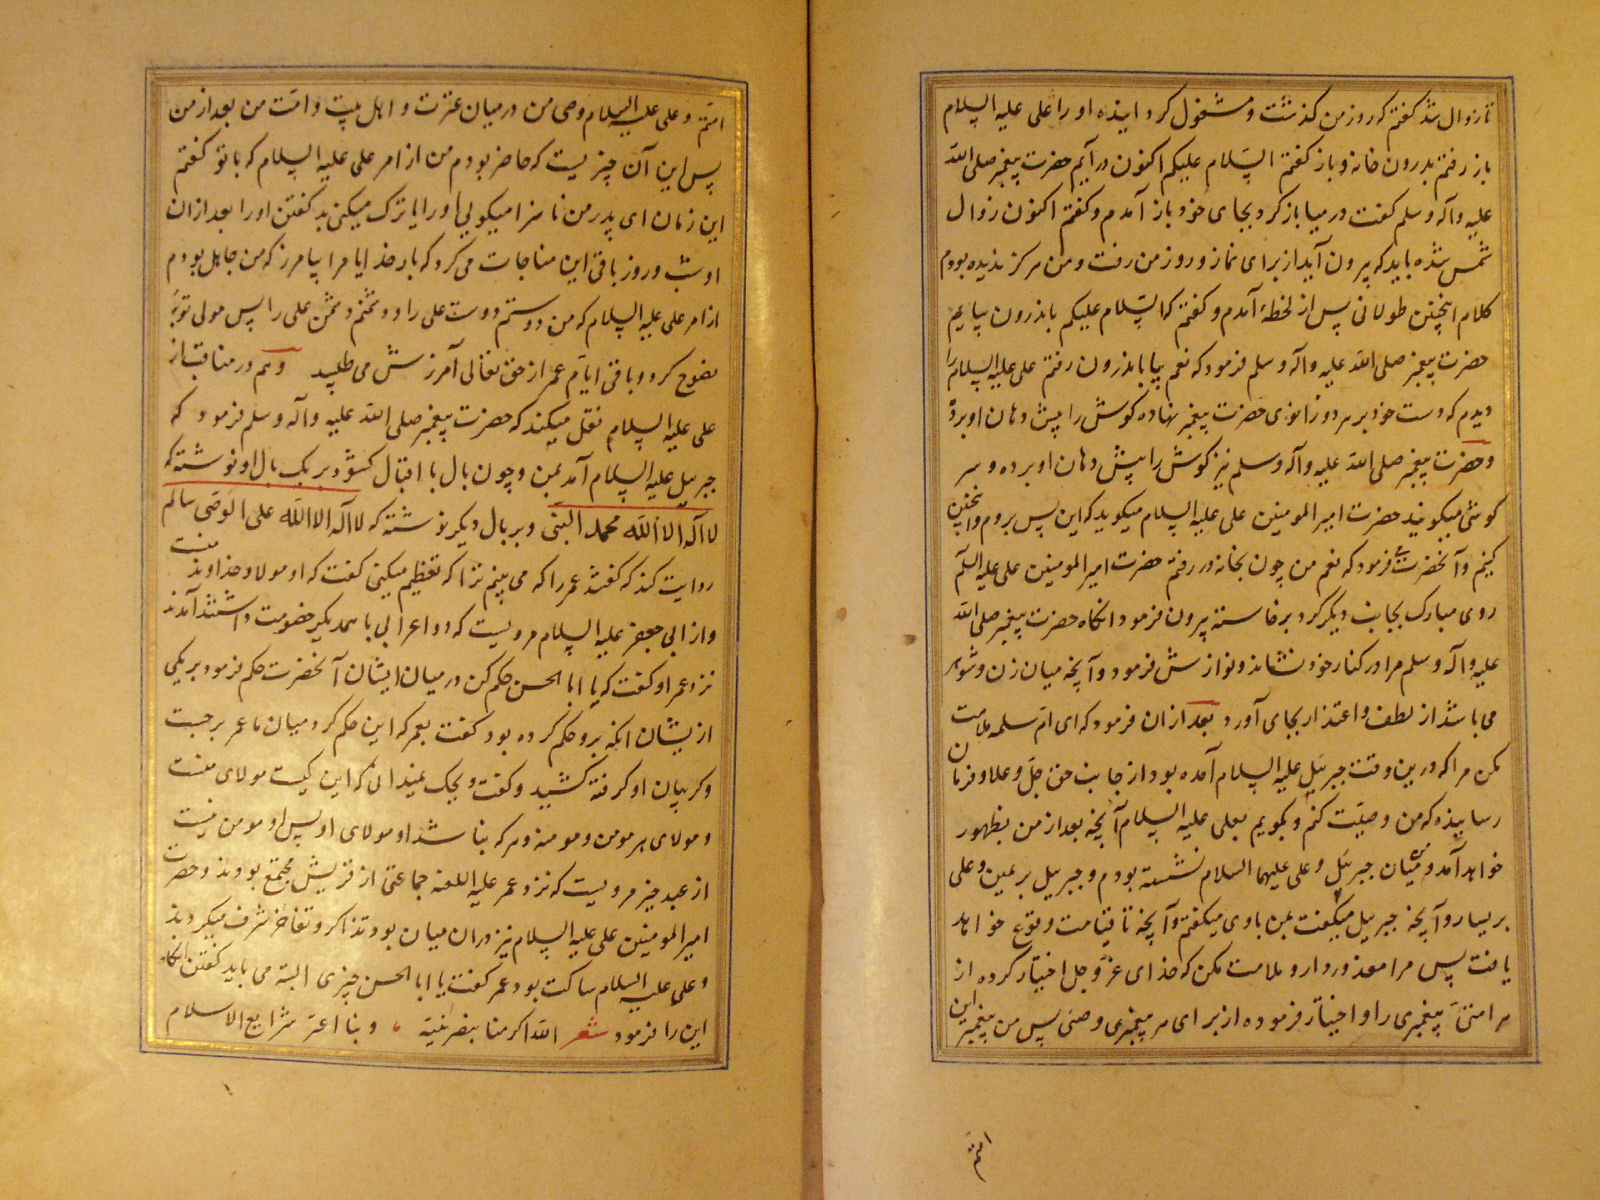 تا زوال شد گفتم که روز من گذشت و مشغول کردانیده او را علی علیه السلام
باز رفتم بدرون خانه و باز گفتم السلام علیکم اکنون درآیم حضرت پیغمبر صلی الله
علیه وآله وسلم گفت درمیا باز کردم بجای خود باز آمدم وگفتم اکنون زوال
شمس شده باید که بیرون آید از برای نماز و روز من رفت ومن هرگز ندیده بودم
کلام اینچنین طولانی پس از لحظهٔ آمدم وگفتم که السلام علیکم باندرون بیایم
حضرت پیغمبر صلی الله علیه وآله وسلم فرمود که نعم بیا باندرون رفتم علی علیه السلام را
دیدم که دست خود بر هر دو زانوی حضرت پیغمبر نهاده گوش را پیش دهان او برده
وحضرت پیغمبر صلی الله علیه وآله وسلم نیز گوش را پیش دهان او برده و سر
گوشی میگویند حضرت امیرالمومنین علی علیه السلام میگوید که این پس بروم واینچنین
کنم وآنحضرت فرمود که نعم من چون بخانه در رفتم حضرت امیرالمومنین علی علیه السلم
روی مبارک بجانب دیگر کرد برخاسته بیرون فرمود انگاه حضرت پیغمبر صلی الله
علیه وآله وسلم مرا در کنار خود نشاند و نوازش فرمود وآنچه میان زن وشوهر
می باشد از لطف واعتذار بجای آورد بعد ازان فرمود که ای ام سلمه ملامت
مکن مرا که درین وقت جبرئیل علیه السلام آمده بود از جانب حق جل وعلا وفرمان
رسانیده که من وصیت کنم وبگویم بعلی علیه السلام آنچه بعد از من بظهور
خواهد آمد و من میان جبرئیل وعلی علیهما السلام نشسته بودم و جبرئیل بر یمین وعلی
بر یسار وآنچه جبرئیل میگفت بمن باوی میگفتم وآنچه تا قیامت وقوع خواهد
یافت پس مرا معذور دار و ملامت مکن که خدای عز وجل اختیار کرده از
هر امتی پیغمبری را و اختیار فرموده از برای هر پیغمبری وصی پس من پیغمبر این
امتم
امتم وعلی علیه السلام وصی من درمیان عترت واهل بیت وامت من بعد از من
پس این آن چیزیست که حاضر بودم من از امر علی علیه السلام که با تو گفتم
این زمان ای پدر من ناسزا میگویی او را یا ترک میکنی بد گفتن او را بعد ازان
او شب وروز باقی این مناجات می کرد که بار خدایا مرا بیامرز که من جاهل بودم
از امر علی علیه السلام که من دوستم دوست علی را ودشمنم دشمن علی را پس مولی توبه
نصوح کرد و باقی ایام عمر از حق تعالی آمرزش می طلبید وهم در مناقب از
علی علیه السلام نقل میکند که حضرت پیغمبر صلی الله علیه وآله وسلم فرمود که
جبرئیل علیه السلام آمد بمن وچون بال با اقبال گشود بر یک بال او نوشته که
لا اله الا الله محمد النبی وبر بال دیگر نوشته که لا اله الا الله علی الوصی سالم
روایت کند که گفتند عمر را که می بینم ترا که تعظیم میکنی گفت که او مولا وخداوند منست
واز ابی جعفر علیه السلام مرویست که دو اعرابی با همدیگر خصومت داشتند آمدند
نزد عمر او گفت که یا ابا الحسن حکم کن درمیان ایشان آنحضرت حکم فرمود بر یکی
از یشان آنکه برو حکم کرده بود گفت بعمر که این حکم کرد میان ما عمر برجست
وگریبان او گرفته کشید وگفت ویحک نمیدانی که این کیست مولای منست
ومولای هر مومن ومومنه وهر که نباشد او مولای او پس او مومن نیست
از عبد خیر مرویست که نزد عمر علیه اللعنه جماعتی از قریش مجتمع بودند وحضرت
امیرالمومنین علی علیه السلام نیز دران میان بود تذاکر وتفاخر شرف میکردند
وعلی علیه السلام ساکت بود عمر گفت یا ابا الحسن چیزی البته می باید گفتن انگاه
این را فرمود شعر الله اکرمنا بنصر نبیه ، وبنا اعز شرایع الاسلام